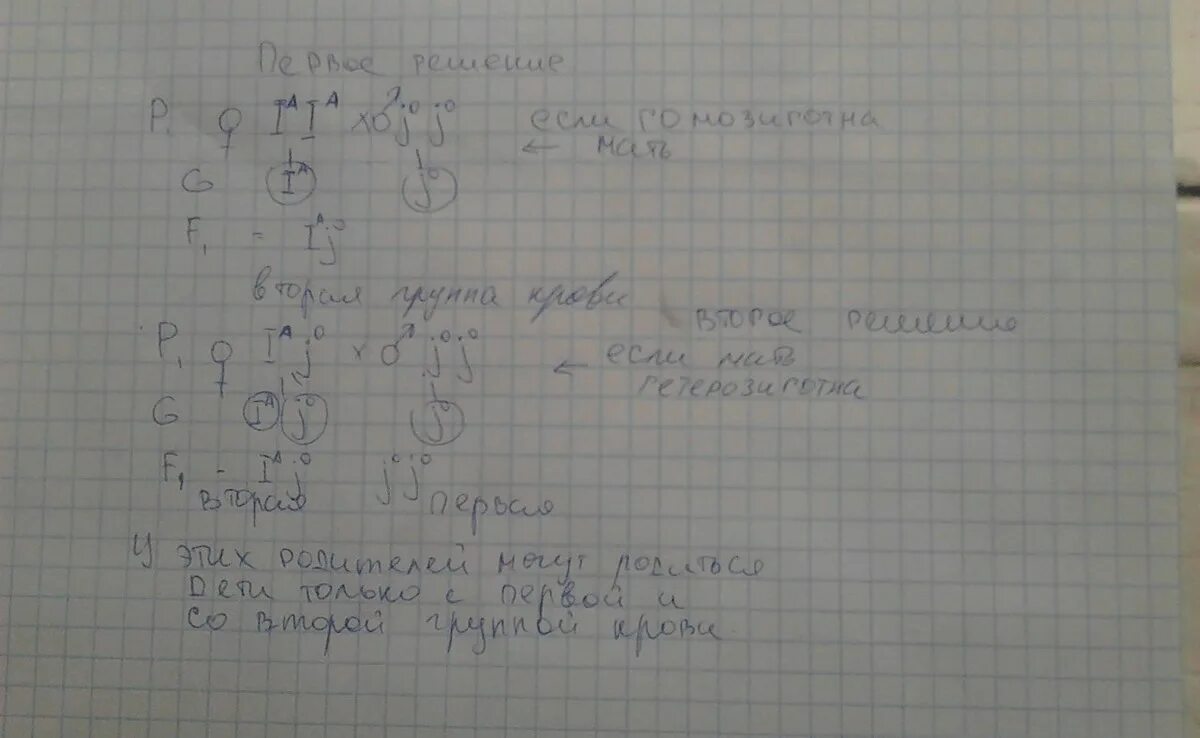 Первое решение
P. ♀ IᴬIᴬ × ♂ j⁰j⁰ если гомозиготна
← мать
G Iᴬ j⁰
F₁ - Iᴬj⁰
вторая группа крови
второе решение
P₁ ♀ Iᴬj⁰ × ♂ j⁰j⁰ ← если мать
гетерозиготна
G Iᴬ j⁰ j⁰
F₁ - Iᴬj⁰ j⁰j⁰
вторая первая
У этих родителей могут родиться
дети только с первой и
со второй группой крови